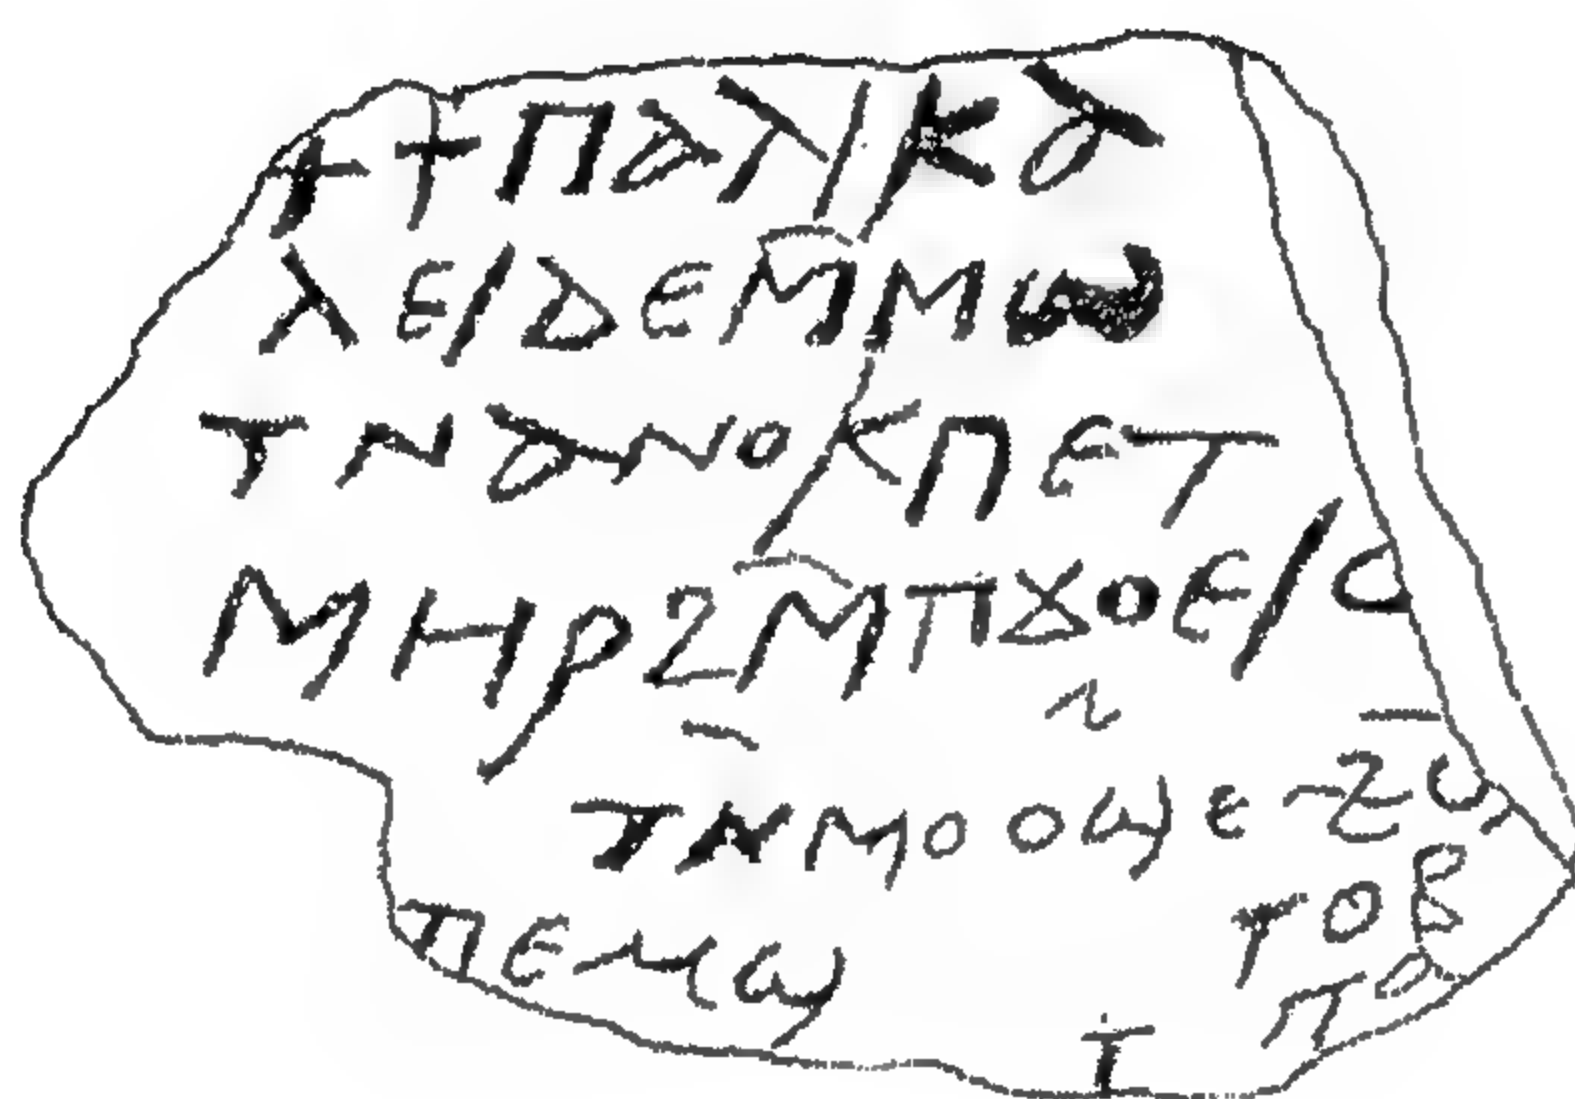 + ϯⲡⲁⲗⲓⲕⲁ
ⲗⲉⲓⲇⲉⲙ̅ⲙⲱ
ⲧⲛⲁⲛⲟⲕⲡⲉⲧ
ⲙⲏⲣϩⲙ̅ⲡϫⲟⲉⲓⲥ
ⲧⲛ̅ⲙⲟⲟϣⲉ
ⲡⲉⲙϣ ⲧⲟⲃ
ⲡⲁ
ⲧ